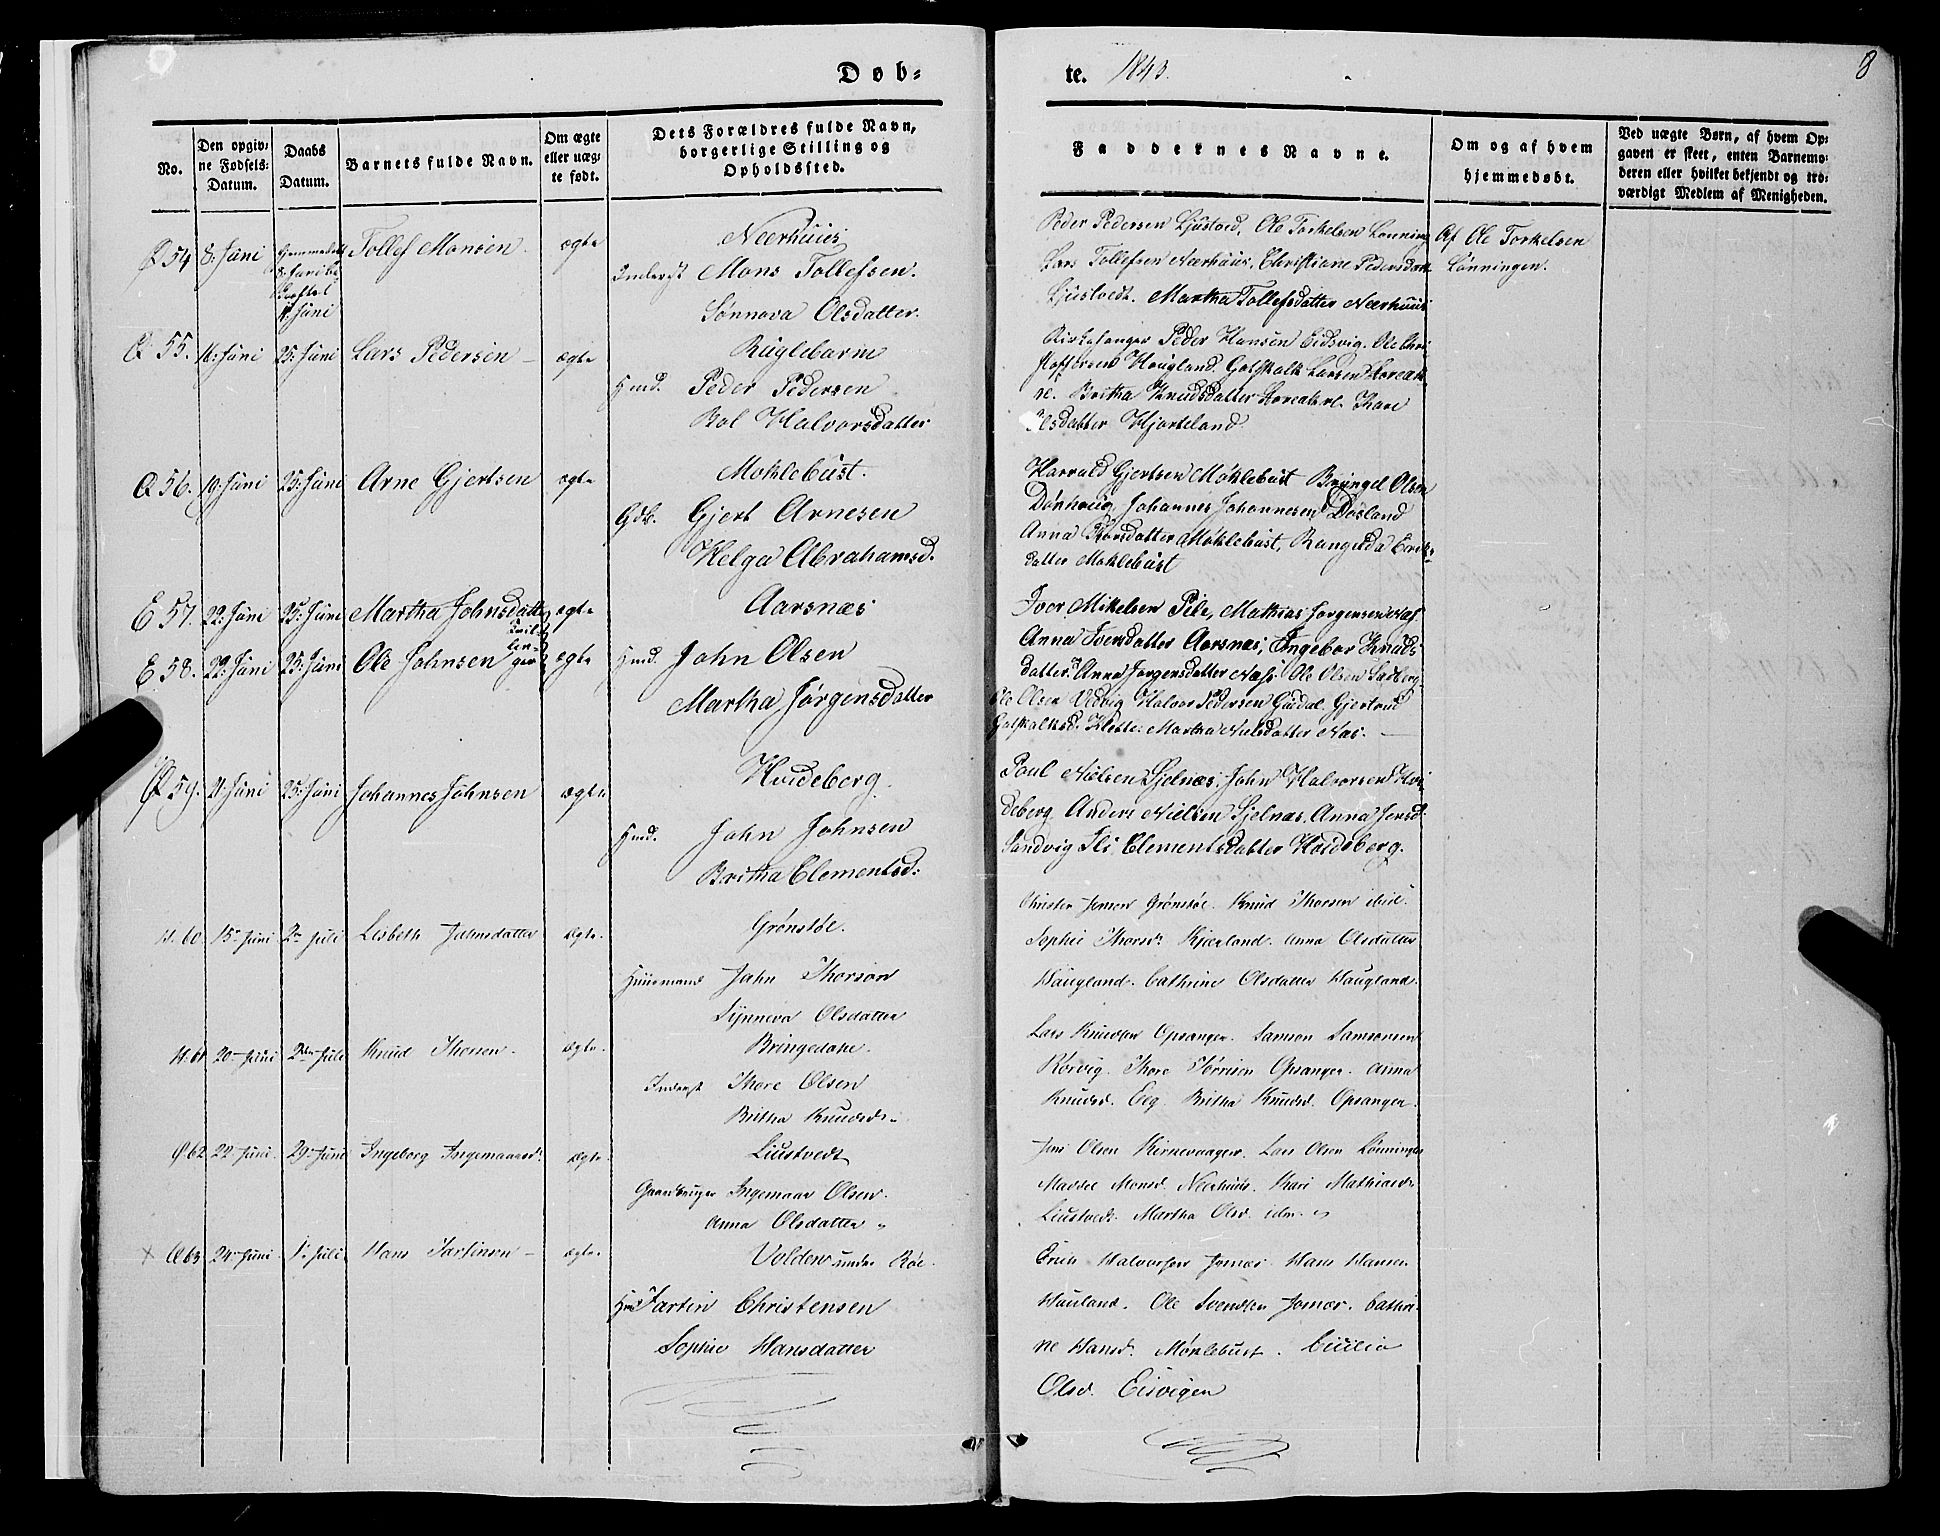 Døb-
te. 1843.
8
No.
Den opgiv-
ne Fødsels-
Datum.
Daabs
Datum.
Barnets fulde Navn.
Om ægte
eller uæg-
te født.
Dets Forældres fulde Navn,
borgerlige Stilling og
Opholdssted.
Faddernes Navne.
Om og af hvem
hjemmedøbt.
Ved uægte Børn, af hvem Op-
gaven er skeet, enten Barnemo-
deren eller hvilket bekjendt og tro-
værdigt Medlem af Menigheden.
54 8 Juni Tollef Monsen. ægte Neerhuus
Inderst Mons Tollefsen.
Sønnova Olsdatter.
Peder Pedersen Ljustved, Ole Torkelsen Lønning
Lars Tollefsen Neerhuus, Christiane Pedersdatt
Ljustvedt. Martha Tollefsdatter Neerhuus
Af Ole Torkelsen
Lønningen.
55. 16 Juni 25 Juni Lars Pedersen – ægte Ruglebarm
Hmd. Peder Pedersen
Bol Halvorsdatter
Kirkesanger Peder Hansen Eidsvig. Ole Chri
stoffersen Hougland. Gotskalk Larsen
Britha Knudsdatter Kare
Olsdatter Hjorteland
56. 19 Juni 25 Juni Arne Gjertsen ægte Moklebust.
Gdb. Gjert Arnesen
Helga Abrahamsd.
Harrald Gjertsen Møklebust Bryngel Olsen
Johannes Johannesen Døsland
Anna Moklebust, Rangilda Erik-
datter Moklebust
E 57. 22 Juni 25 Juni Martha Johnsdatte ægte Aarsnæs
E 58. 22 Juni 25 Juni Ole Johnsen ægte Hmd. John Olsen
Tvil-
lin-
ger
Martha Jørgensdatter
Iver Mikelsen Pile, Mathias Jorgensen Næs
Anna Iversdatter Aarsnæs, Ingebor Knuds
datter Anna Jørgensdatter Næs. Ole Olsen
Ole Olsen Vedvig Halvor Pedersen Guddal Gjertrud
Gotskalksd. Klette. Martha Nielsdatter Næs. –
59. 21 Juni 25 Juni Johannes Johnsen ægte Hvideberg.
Hmd. John Johnsen
Britha Clementsd.
Poul Nielsen Sjelnæs, John Halvorsen Hvi-
deberg Anders Nielsen Sjelnæs, Anna Jensd.
Sandvig Ili Clementsdatter Hvideberg.
H. 60. 15 Juni 2 Juli Lisbeth Johnsdatter ægte. Grønstøl.
Huusmand John Thorson
Synneva Olsdatter
Christen Jonson Grønstøl. Knud Thorsen ibid.
Sophie Thorsd. Kjærland. Anna Olsdatter
Haugland. Cathrine Olsdatter Haugland.
H. 61 20 Juni 2 Juli Knud Thorsen. ægte. Bringedahl.
Inderst Thore Olsen
Britha Knudsd.
Lars Knudsen Opsanger. Samson Samsonsen
Rørvig. Thore Tørrisen Opsanger. Anna
Knudsd. Eeg. Britha Knudsd. Opsanger.
Ø 62 22 Juni. 29 Juni Ingeborg Ingemaarsd. ægte. Liustvedt
Gaardbruger Ingemaar Olsen.
Anna Olsdatter
Jens Olsen Kirnevaagen. Lars Olsen Lønningen
Monsd. Neerhuus. Kari Mathiasd.
Liustvedt. Martha Olsd. idm.
63. 24 Juni 1 Juli Hans Tartinsen – ægte. Volden under Røe.
Hmd Tartin Christensen
Sophie Hansdatter
Erich Halvorsen Jomær. Hans Hansen
Hauland. Ole Svendsen Jomær. Cathri
ne Hansd. Møklebust. Cicilia
Olsd. Eisvigen